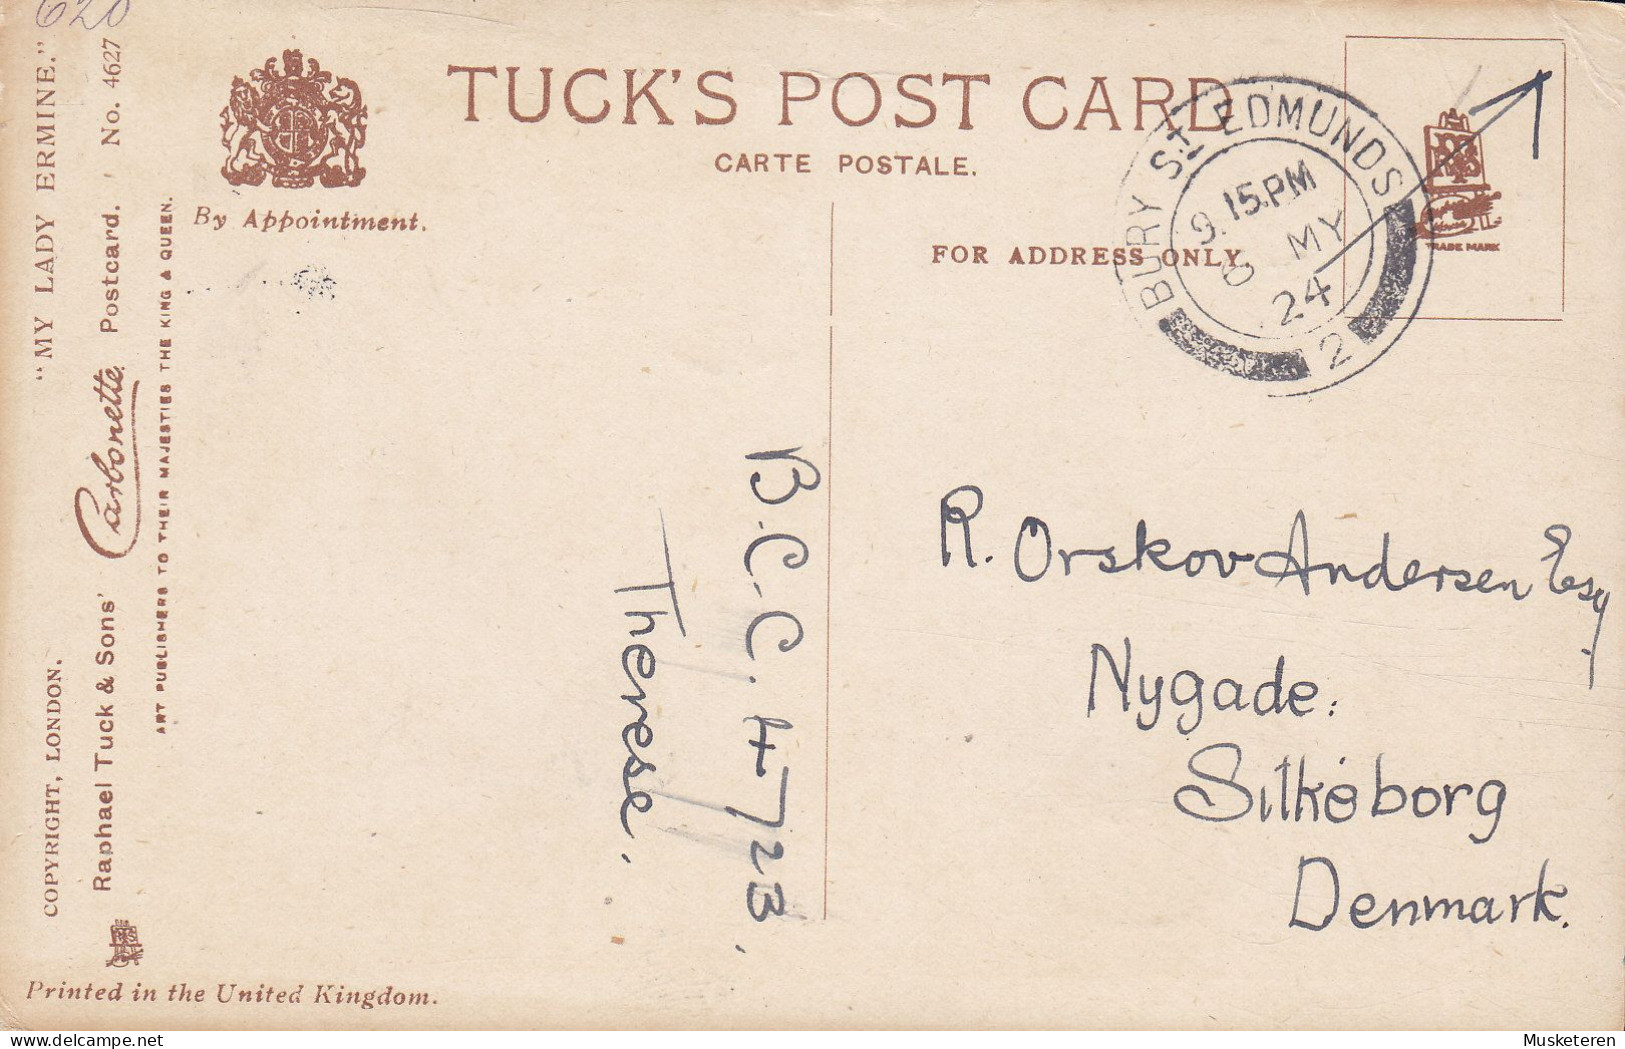 620
"MY LADY ERMINE."
COPYRIGHT, LONDON.
Raphael Tuck & Sons' Carbonette Postcard. No. 4627
ART PUBLISHERS TO THEIR MAJESTIES THE KING & QUEEN.
By Appointment.
TUCK'S POST CARD
CARTE POSTALE.
FOR ADDRESS ONLY.
BURY ST EDMUNDS
9.15.PM
MY
24
2
TRADE MARK
B.C.C. 4723.
Therese.
R. Orskov Andersen Esq
Nygade:
Silkeborg
Denmark.
Printed in the United Kingdom.
Musketeren